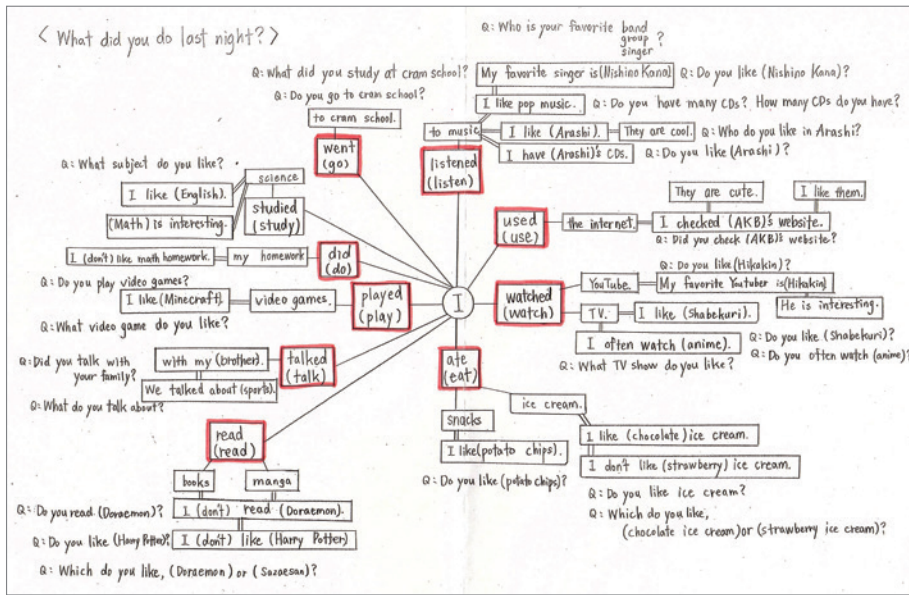 < What did you do last night? >
Q: Who is your favorite band
group
singer ?
Q: What did you study at cram school?
My favorite singer is (Nishino Kana)
Q: Do you like (Nishino Kana)?
Q: Do you go to cram school?
to cram school.
went
(go)
I like pop music.
Q: Do you have many CDs? How many CDs do you have?
to music
I like (Arashi).
They are cool.
Q: Who do you like in Arashi?
I have (Arashi)'s CDs.
Q: Do you like (Arashi)?
listened
(listen)
Q: What subject do you like?
science
I like (English).
(Math) is interesting.
studied
(study)
They are cute.
I like them.
used
(use)
the internet.
I checked (AKB)'s website.
Q: Did you check (AKB)'s website?
I (don't) like math homework.
my homework
did
(do)
Q: Do you play video games?
I like (Minecraft).
video games.
played
(play)
Q: What video game do you like?
I
Q: Do you like (Hikakin)?
watched
(watch)
YouTube.
My favorite Youtuber is (Hikakin)
He is interesting.
TV.
I like (Shabekuri).
Q: Do you like (Shabekuri)?
I often watch (anime).
Q: Do you often watch (anime)?
Q: What TV show do you like?
Q: Did you talk with
your family?
with my (brother).
talked
(talk)
We talked about (sports).
Q: What do you talk about?
ate
(eat)
snacks
I like (potato chips).
Q: Do you like (potato chips)?
ice cream.
I like (chocolate) ice cream.
I don't like (strawberry) ice cream.
Q: Do you like ice cream?
Q: Which do you like,
(chocolate ice cream) or (strawberry ice cream)?
read
(read)
books
manga
Q: Do you read (Doraemon)?
I (don't) read (Doraemon).
Q: Do you like (Harry Potter)?
I (don't) like (Harry Potter)
Q: Which do you like, (Doraemon) or (Sazaesan)?